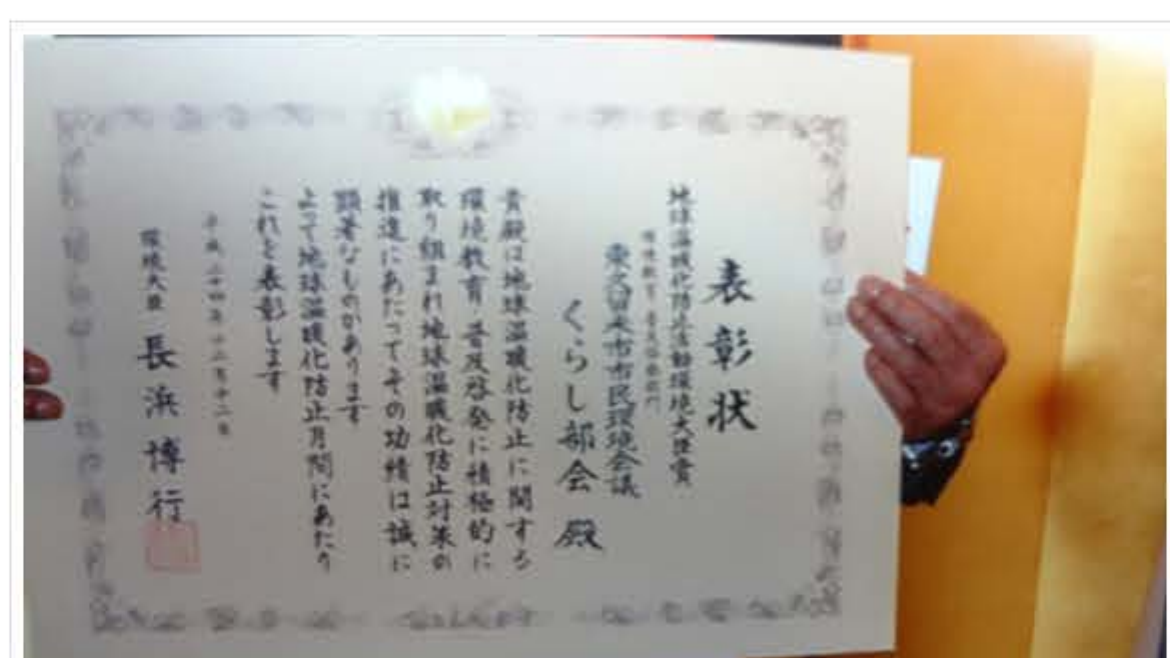 表彰状
地球温暖化防止活動環境大臣賞
環境教育・普及啓発部門
東久留米市市民環境会議
くらし部会 殿
貴殿は地球温暖化防止に関する
環境教育・普及啓発に積極的に
取り組まれ地球温暖化防止対策の
推進にあたってその功績は誠に
顕著なものがあります
よって地球温暖化防止月間にあたり
これを表彰します
平成二十四年十二月十二日
環境大臣 長浜博行